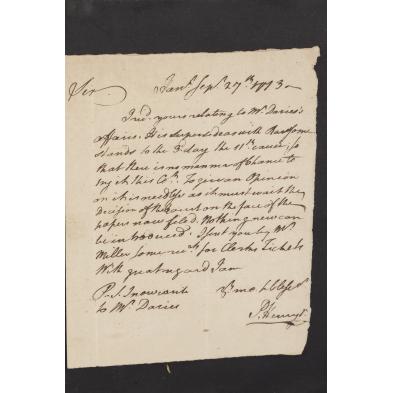 Sir Sepr. 27th. 1773
I recd. yours relating to Mr. Davies's
affairs. His Supersedeas with Ransome
stands to the 3d. day the 11th. cause; so
that there is no manner of Chance to
try it this Ct. To give an Opinion
on it is needless as it must wait the
decision of the Court on the face of the
papers now filed. Nothing new can
be introduced. I sent you by Mr.
Miller some rects. for Clerks Tickets
With great regard I am
P.S. I now write Yr. mo. obt. Serv
to Mr. Davies
P. Henry Jr.